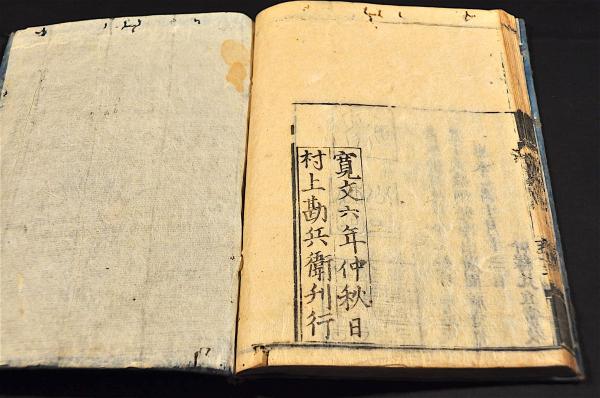 寛文六年仲秋日
村上勘兵衛刊行